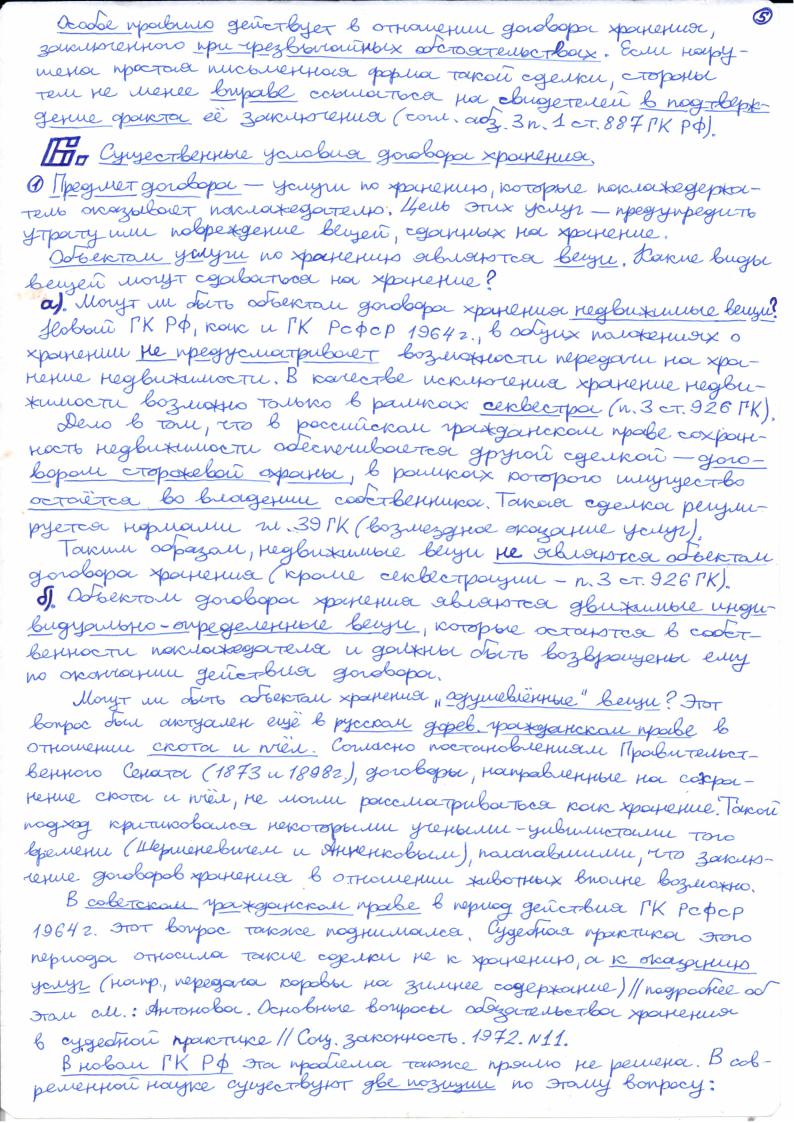 5
Особое правило действует в отношении договора хранения,
заключенного при чрезвычайных обстоятельствах. Если нару-
шена простая письменная форма такой сделки, стороны
тем не менее вправе ссылаться на свидетелей в подтверж-
дение факта её заключения (согл. абз. 3 п. 1 ст. 887 ГК РФ).
Существенные условия договора хранения.
① Предмет договора — услуги по хранению, которые поклажедержа-
тель оказывает поклажедателю. Цель этих услуг — предупредить
утрату или повреждение вещей, сданных на хранение.
Объектом услуги по хранению являются вещи. Какие виды
вещей могут сдаваться на хранение?
а). Могут ли быть объектом договора хранения недвижимые вещи?
Новый ГК РФ, как и ГК РСФСР 1964 г., в общих положениях о
хранении не предусматривает возможности передачи на хра-
нение недвижимости. В качестве исключения хранение недви-
жимости возможно только в рамках секвестра (п. 3 ст. 926 ГК).
Дело в том, что в российском гражданском праве сохран-
ность недвижимости обеспечивается другой сделкой — дого-
вором сторожевой охраны, в рамках которого имущество
остаётся во владении собственника. Такая сделка регули-
руется нормами гл. 39 ГК (возмездное оказание услуг).
Таким образом, недвижимые вещи не являются объектом
договора хранения (кроме секвестрации – п. 3 ст. 926 ГК).
б). Объектом договора хранения являются движимые инди-
видуально-определенные вещи, которые остаются в собст-
венности поклажедателя и должны быть возвращены ему
по окончании действия договора.
Могут ли быть объектом хранения „одушевлённые" вещи? Этот
вопрос был актуален ещё в русском дорев. гражданском праве в
отношении скота и пчёл. Согласно постановлениям Правительст-
венного Сената (1873 и 1898 г.), договоры, направленные на сохра-
нение скота и пчёл, не могли рассматриваться как хранение. Такой
подход критиковался некоторыми учеными-цивилистами того
времени (Шершеневичем и Анненковым), полагавшими, что заклю-
чение договоров хранения в отношении животных вполне возможно.
В советском гражданском праве в период действия ГК РСФСР
1964 г. этот вопрос также поднимался. Судебная практика этого
периода относила такие сделки не к хранению, а к оказанию
услуг (напр., передача коровы на зимнее содержание) // подробнее об
этом см.: Антонова. Основные вопросы обязательства хранения
в судебной практике // Соц. законность. 1972. N 11.
В новом ГК РФ эта проблема также прямо не решена. В сов-
ременной науке существуют две позиции по этому вопросу: